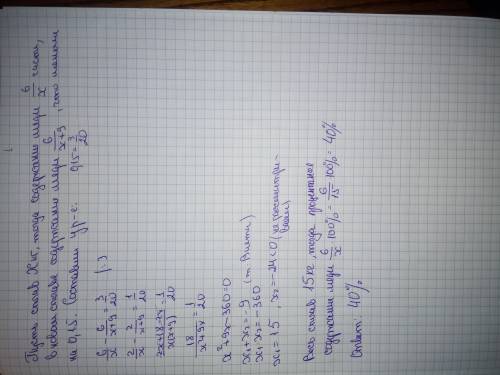 Пусть сплав x кг, тогда содержание меди 6/x части,
в новом сплаве содержание меди 6/x+9, что меньше
на 0,15. Составим ур-е: 0,15 = 3/20
6/x - 6/x+9 = 3/20 |:3
2/x - 2/x+9 = 1/20
2x+18-2x/x(x+9) = 1/20
18/x²+9x = 1/20
x²+9x-360=0
x₁+x₂=-9 (т. Виета)
x₁·x₂=-360
x₁=15, x₂=-24<0 (не рассматри-
ваем)
Весь сплав 15кг, тогда процентное
содержание меди 6/x·100%=6/15·100%=40%
Ответ: 40%